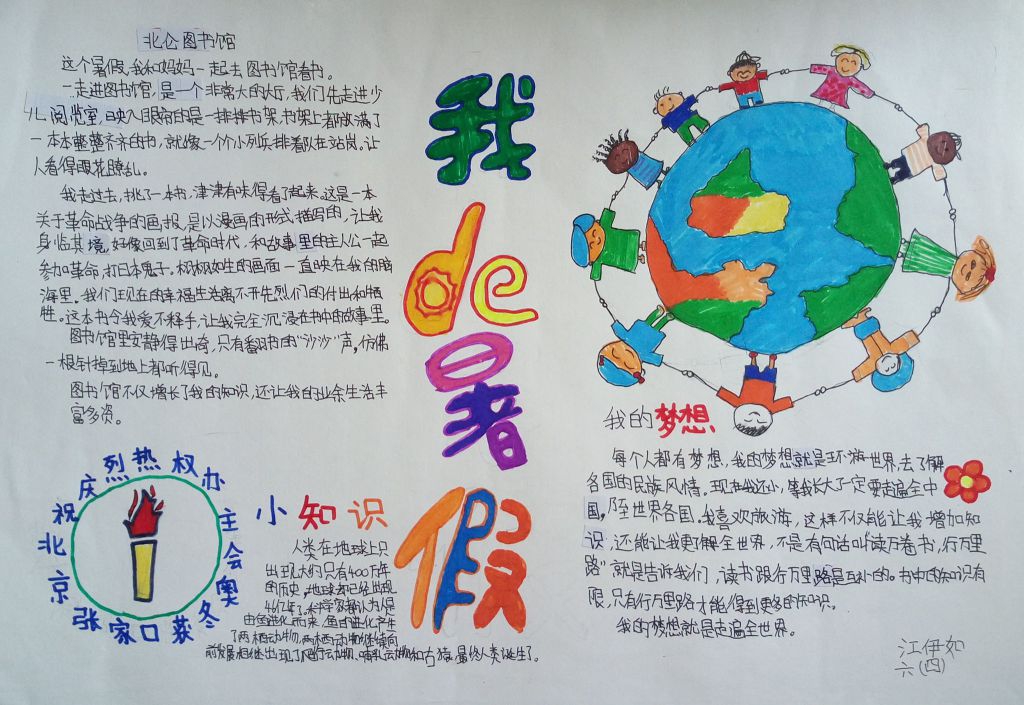 北仑图书馆
这个暑假,我和妈妈一起去图书馆看书。
一走进图书馆,是一个非常大的大厅,我们先走进少
儿阅览室,映入眼帘的是一排排书架,书架上都放满了
一本本整整齐齐的书,就像一个个小列兵排着队在站岗。让
人看得眼花瞭乱。
我走过去,挑了一本书,津津有味得看了起来。这是一本
关于革命战争的画报,是以漫画的形式描写的,让我
身临其境,好像回到了革命时代,和故事里的主人公一起
参加革命,打日本鬼子。栩栩如生的画面一直映在我的脑
海里。我们现在的幸福生活离不开先烈们的付出和牺
牲。这本书令我爱不释手,让我完全沉浸在书中的故事里。
图书馆里安静得出奇,只有翻书的“沙沙”声,仿佛
一根针掉到地上都听得见。
图书馆不仅增长了我的知识,还让我的业余生活丰
富多资。
我de暑假
热烈庆祝北京张家口获冬奥会主办权
小知识
人类在地球上只
出现大约只有400万年
的历史,地球却已经出现
46亿年了。科学家都认为人是
由鱼进化而来,鱼的进化产生
了两栖动物,两栖动物继续向
前发展相继出现了爬行动物、哺乳动物和古猿,最终人类诞生了。
我的梦想
每个人都有梦想,我的梦想就是环游世界,去了解
各国的民族风情。现在我还小,等我长大了一定要走遍全中
国,至世界各国。我喜欢旅游,这样不仅能让我增加知
识,还能让我更了解全世界,不是有句话叫“读万卷书,行万里
路”就是告诉我们,读书跟行万里路是互补的。书中的知识有
限,只有行万里路才能得到更多的知识。
我的梦想就是走遍全世界。
江伊如
六(四)